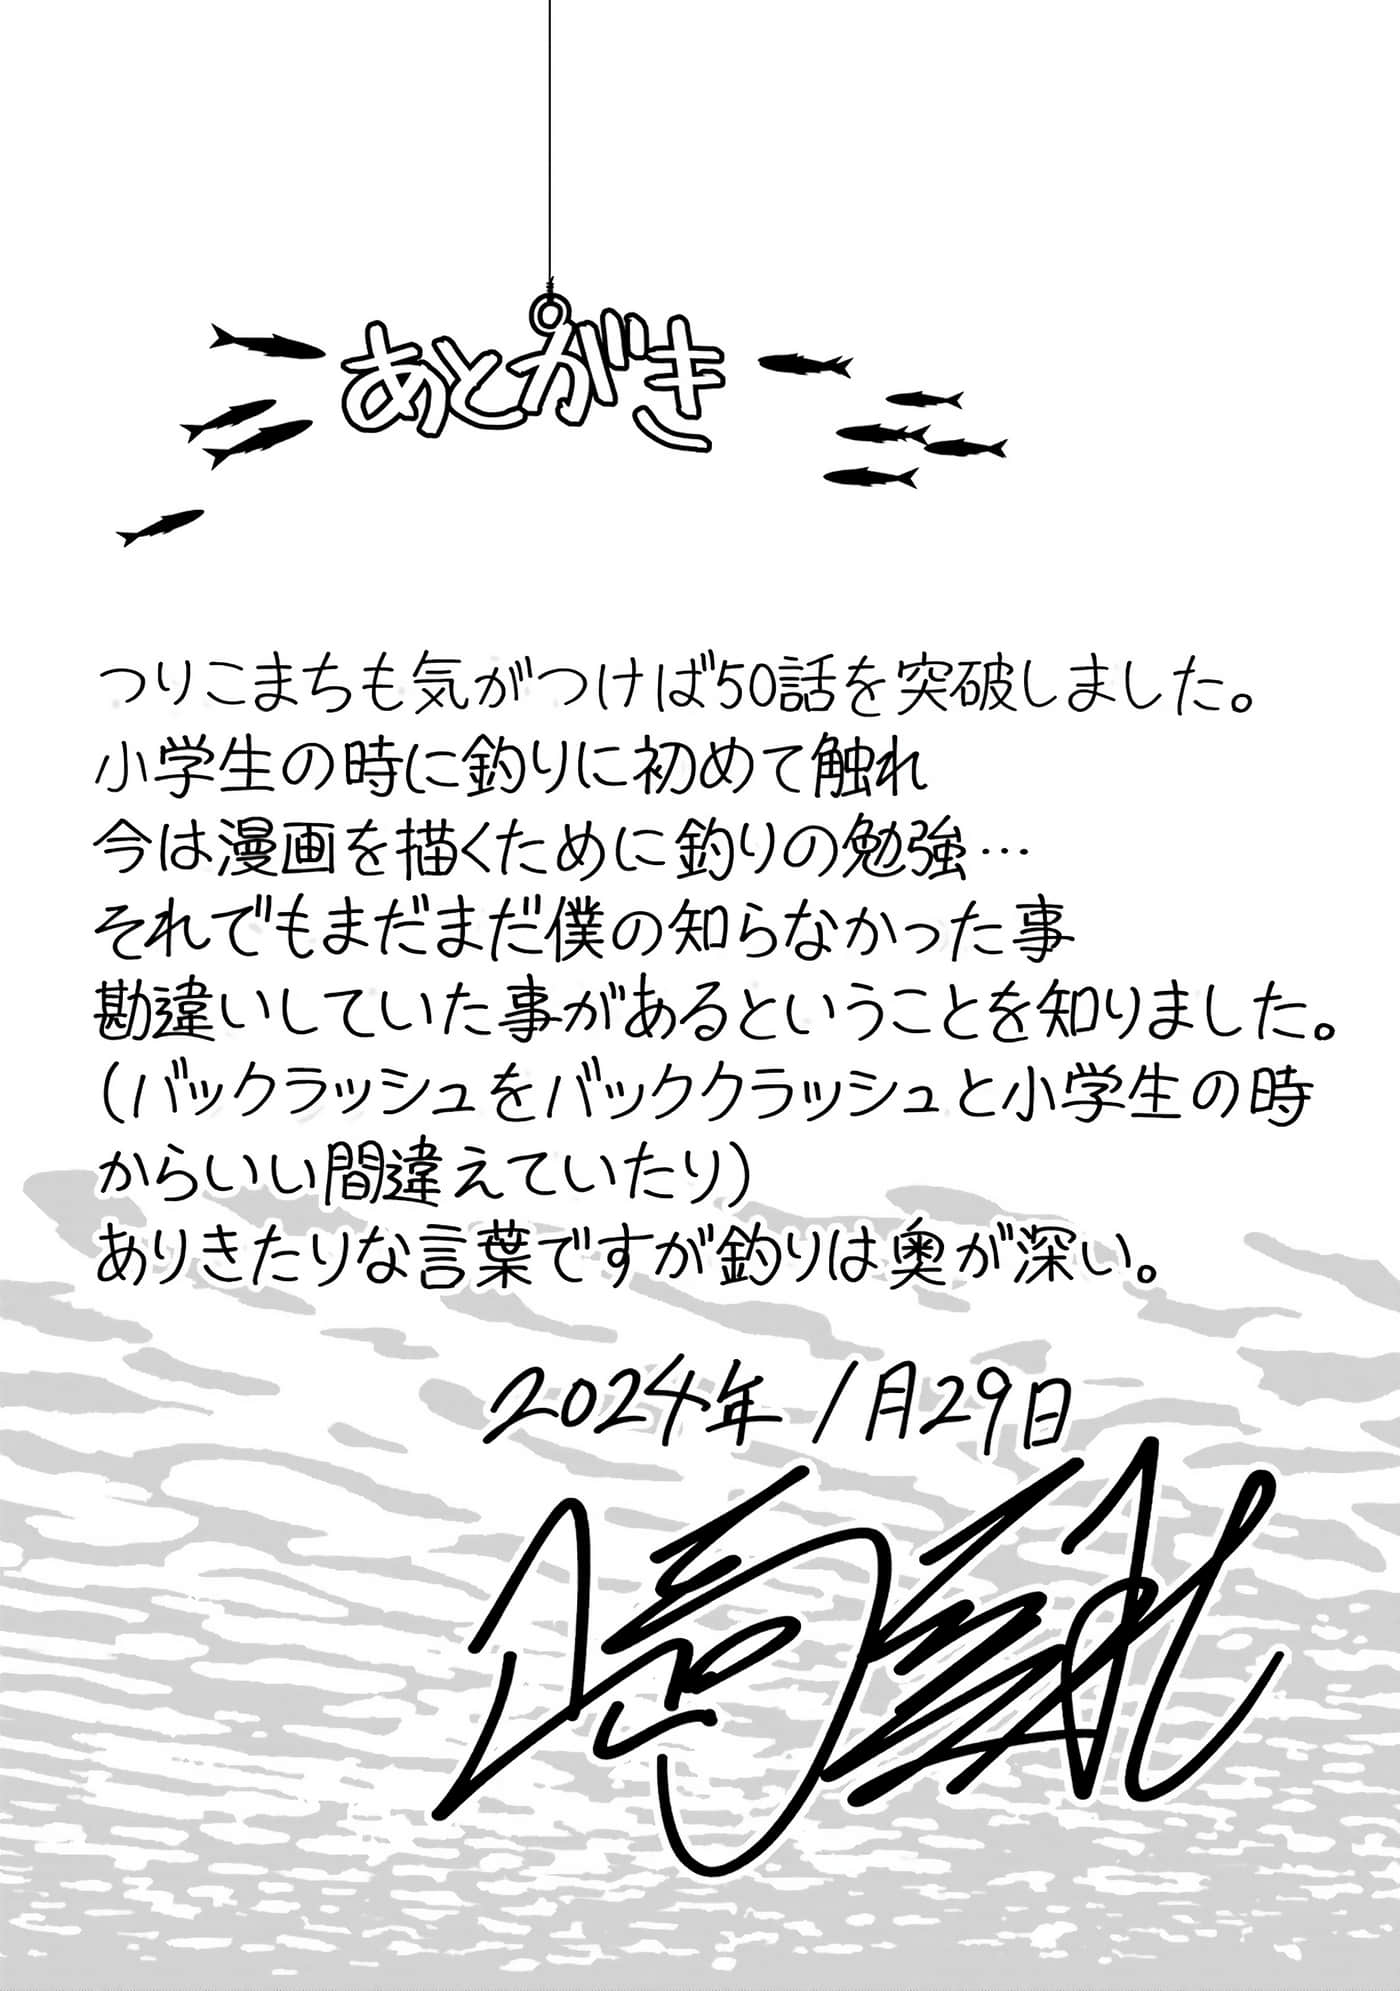 あとがき
つりこまちも気がつけば50話を突破しました。
小学生の時に釣りに初めて触れ
今は漫画を描くために釣りの勉強…
それでもまだまだ僕の知らなかった事
勘違いしていた事があるということを知りました。
(バックラッシュをバッククラッシュと小学生の時
からいい間違えていたり)
ありきたりな言葉ですが釣りは奥が深い。
2024年1月29日